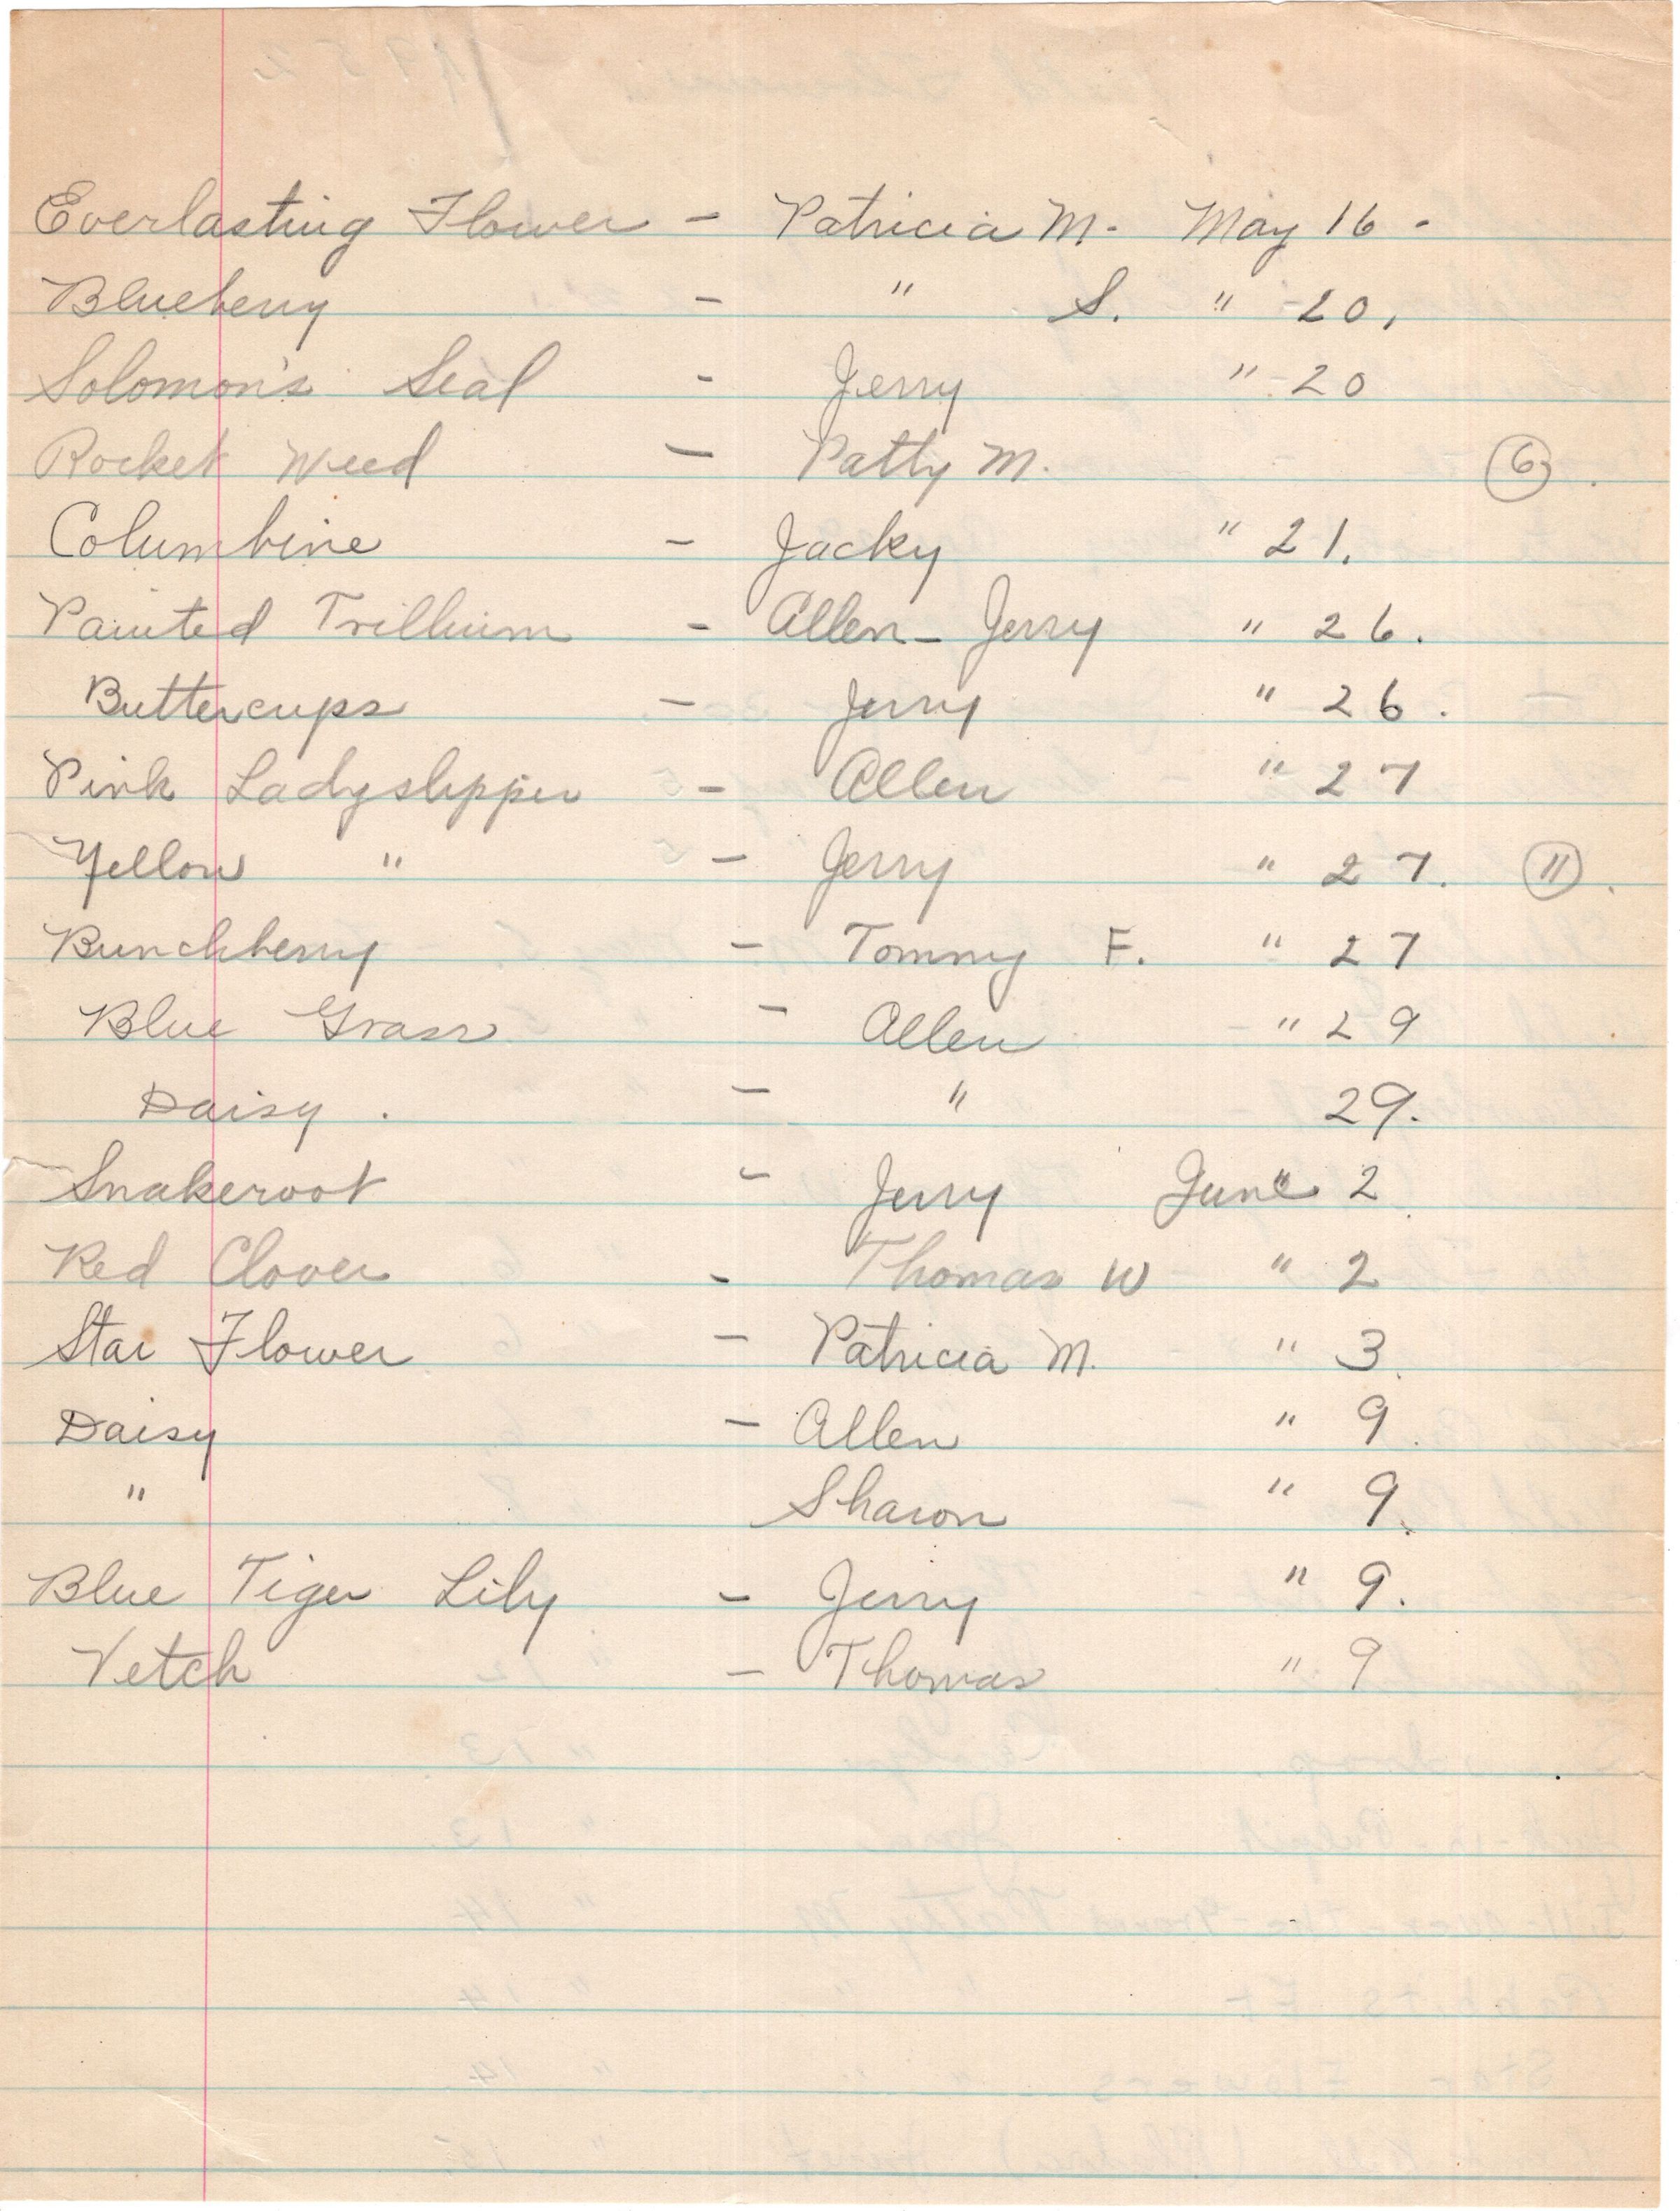 Everlasting Flower - Patricia M. May 16 -
Blueberry - " S. " 20.
Solomon's Seal - Jerry " 20
Rocket Weed - Patty M. 6.
Columbine - Jacky " 21.
Painted Trillium - Allen - Jerry " 26.
Buttercups - Jerry " 26.
Pink Ladyslipper - Allen " 27
Yellow " - Jerry " 27. 11.
Bunchberry - Tommy F. " 27
Blue Grass - Allen " 29
Daisy. - " 29.
Snakeroot - Jerry June 2
Red Clover - Thomas W " 2
Star Flower - Patricia M. " 3
Daisy - Allen " 9
" Sharon " 9.
Blue Tiger Lily - Jerry " 9.
Vetch - Thomas " 9